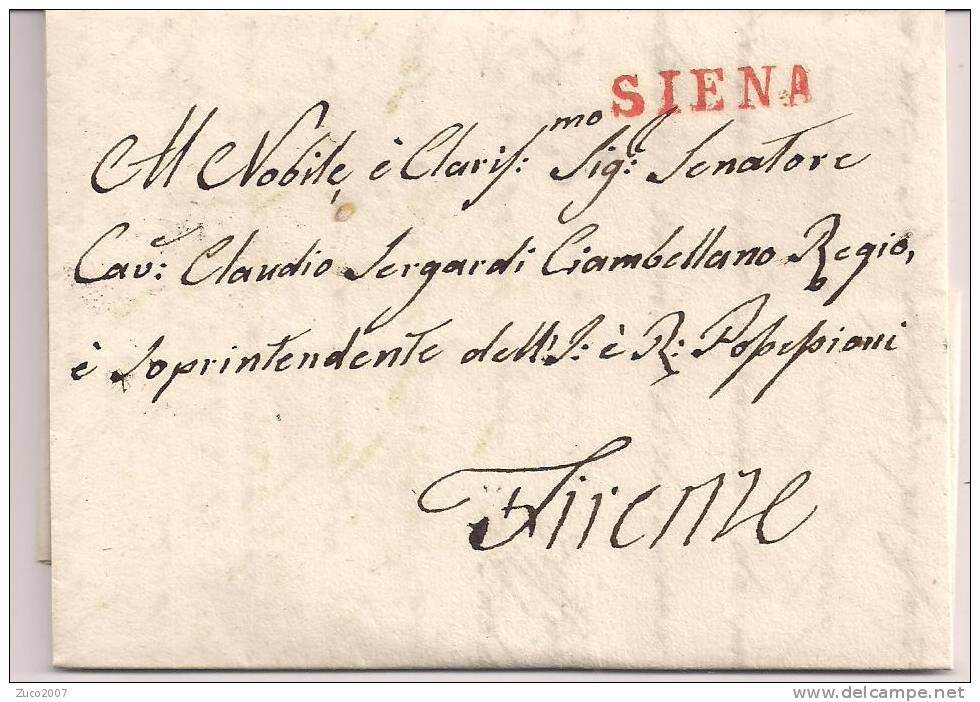 SIENA
All Nobile è Claris: mo Sig:e Senatore
Cav:e Claudio Sergardi Ciambellano Regio,
è Soprintendente dell'I: è R: Possessioni
Firenze
Zuco2007
www.delcampe.net